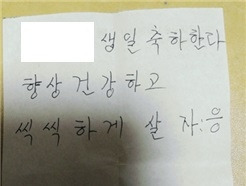 생일축하한다
향상건강하고
씩씩하게 살자.응